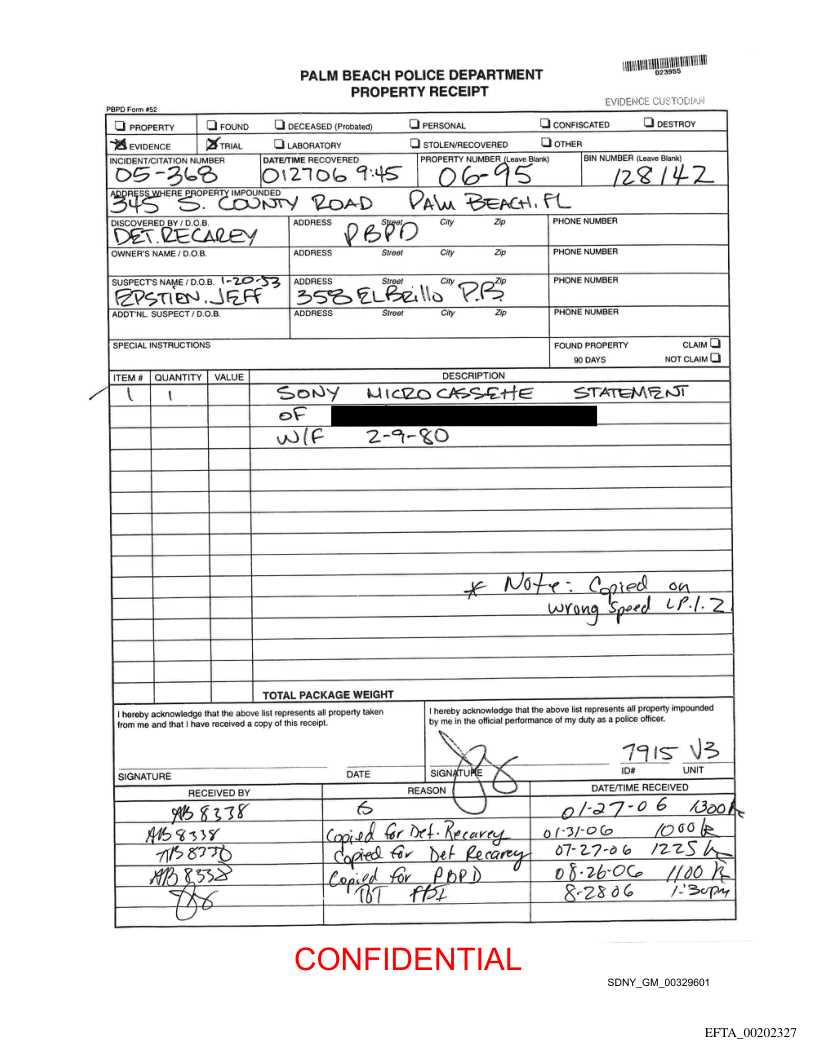 023955
PALM BEACH POLICE DEPARTMENT
PROPERTY RECEIPT
EVIDENCE CUSTODIAN
PBPD Form #52
PROPERTY FOUND DECEASED (Probated) PERSONAL CONFISCATED DESTROY
EVIDENCE TRIAL LABORATORY STOLEN/RECOVERED OTHER
INCIDENT/CITATION NUMBER DATE/TIME RECOVERED PROPERTY NUMBER (Leave Blank) BIN NUMBER (Leave Blank)
05-368 012706 9:45 06-95 128142
ADDRESS WHERE PROPERTY IMPOUNDED
345 S. COUNTY ROAD PALM BEACH, FL
DISCOVERED BY / D.O.B. ADDRESS Street City Zip PHONE NUMBER
DET. RECAREY PBPD
OWNER'S NAME / D.O.B. ADDRESS Street City Zip PHONE NUMBER
SUSPECT'S NAME / D.O.B. 1-20-53 ADDRESS Street City Zip PHONE NUMBER
EPSTIEN, JEFF 358 El Brillo P.B.
ADDT'NL. SUSPECT / D.O.B. ADDRESS Street City Zip PHONE NUMBER
SPECIAL INSTRUCTIONS FOUND PROPERTY CLAIM
90 DAYS NOT CLAIM
ITEM # QUANTITY VALUE DESCRIPTION
1 1 SONY MICROCASSETTE STATEMENT
OF
W/F 2-9-80
* Note: Copied on
wrong Speed LP.1.2
TOTAL PACKAGE WEIGHT
I hereby acknowledge that the above list represents all property taken
from me and that I have received a copy of this receipt.
I hereby acknowledge that the above list represents all property impounded
by me in the official performance of my duty as a police officer.
7915 V3
SIGNATURE DATE SIGNATURE ID# UNIT
RECEIVED BY REASON DATE/TIME RECEIVED
AB 8338 01-27-06 1300
AB 8338 Copied for Det. Recarey 01-31-06 1000
Copied for Det Recarey 07-27-06 1225
AB 8338 Copied for PBPD 08-26-06 1100
TOT FBI 8-2806 1:30pm
CONFIDENTIAL
SDNY_GM_00329601
EFTA_00202327